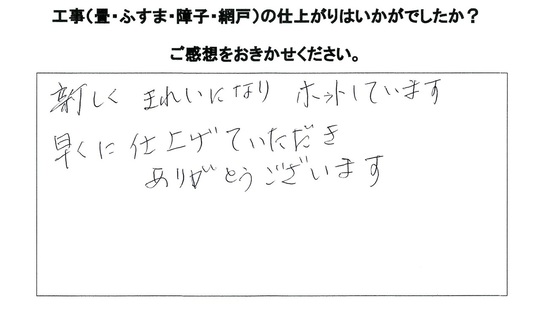 工事(畳・ふすま・障子・網戸)の仕上がりはいかがでしたか?
ご感想をおきかせください。
新しく きれいになり ホットしています
早くに仕上げていただき
ありがとうございます